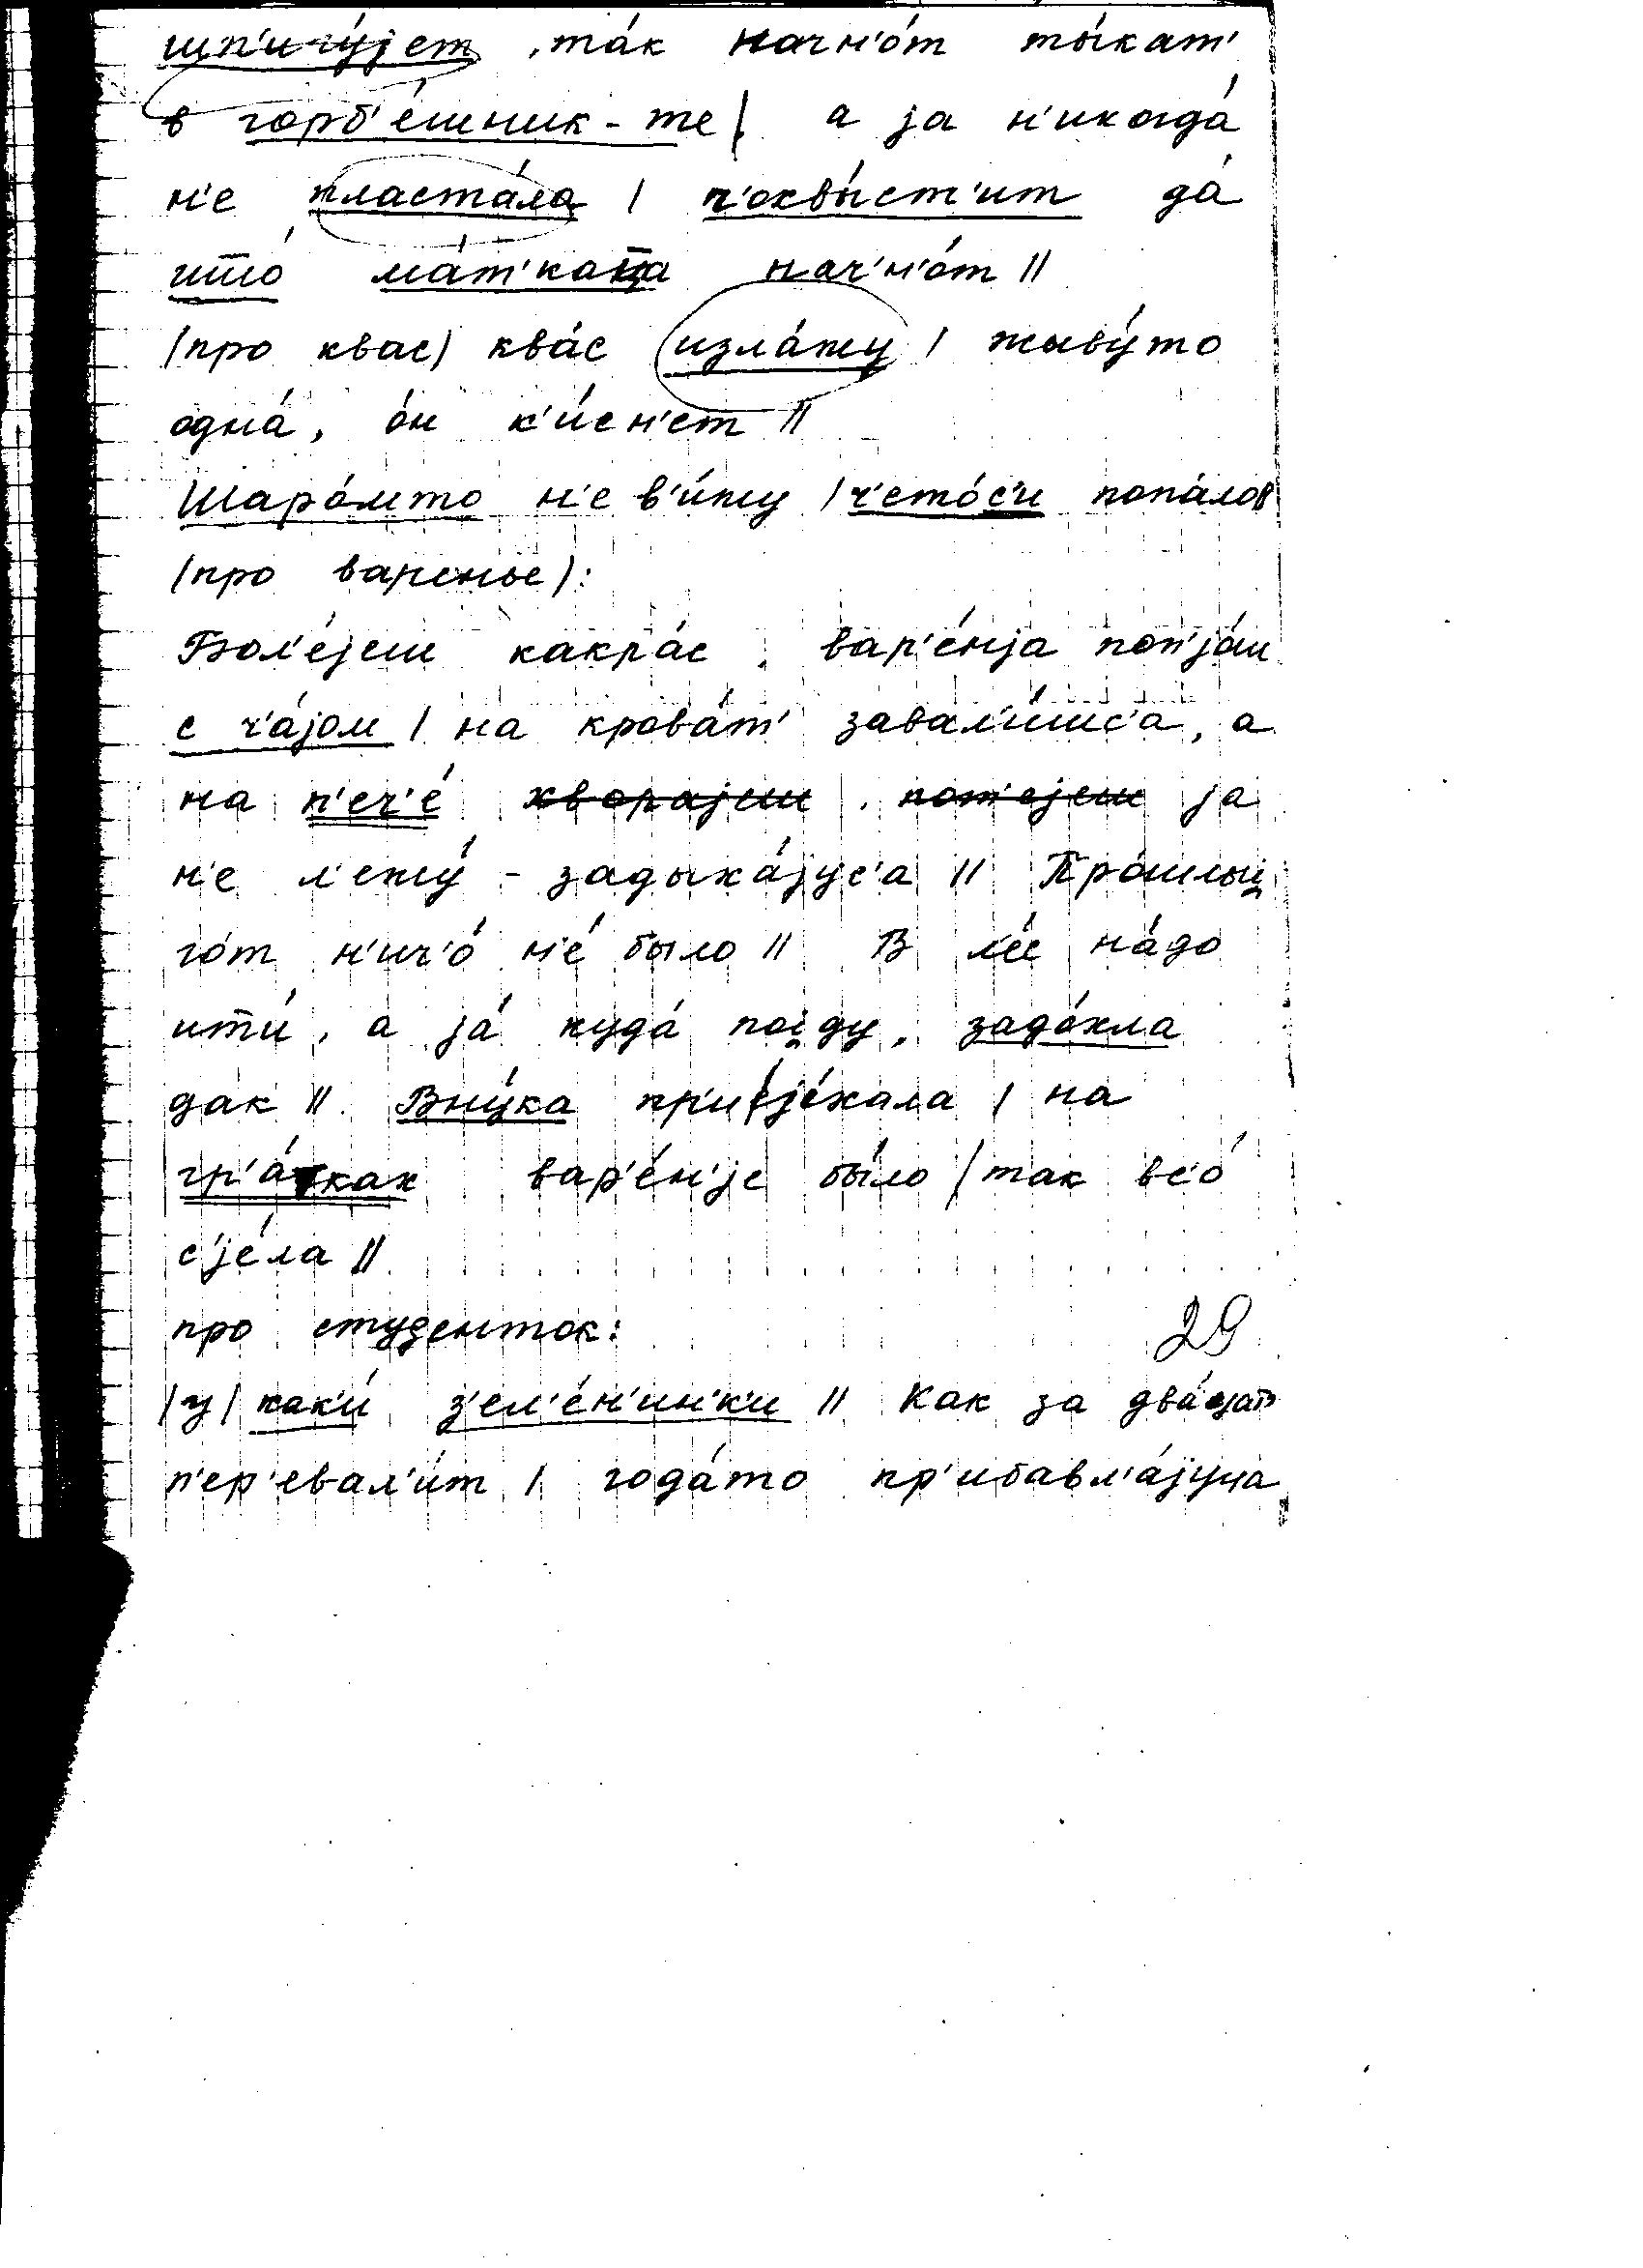 шп'иgу́jет, та́к начн'о́т ты́кат'
в горб'е́шник-те | а jа н'икогда́
н'е пласта́ла | ч'оквы́ст'ит да́
што́ ма́т'каца нач'н'о́т ||
/про квас/ ква́с изла́жу | жыву́то
одна́, о́н к'и́сн'ет ||
Шаро́мто н'е в'и́жу | ч'ето́с'и попа́лов
/про варенье/:
Бол'е́jеш какра́с, вар'е́нjа поп'jо́ш
с ч'а́jом | на крова́т' завал'и́шс'а, а
на п'еч'е́ хвораjеш, пот'еjеш jа
н'е л'ежу́ - задыха́jус'а || Про́шлыį
го́т н'ич'о́ н'е́ было || В л'е́с на́до
ити́, а jа́ куда́ поįду, задо́хла
дак || Вну́ка при|jе́хала | на
гр'а́тках вар'е́н'jе бы́ло | так вс'о́
сjе́ла ||
про студенток: 29
/у/ как'и́ з'ел'е́н'ин'к'и || Как за два́цат'
п'ер'евал'и́т | года́то пр'ибавл'а́jуца